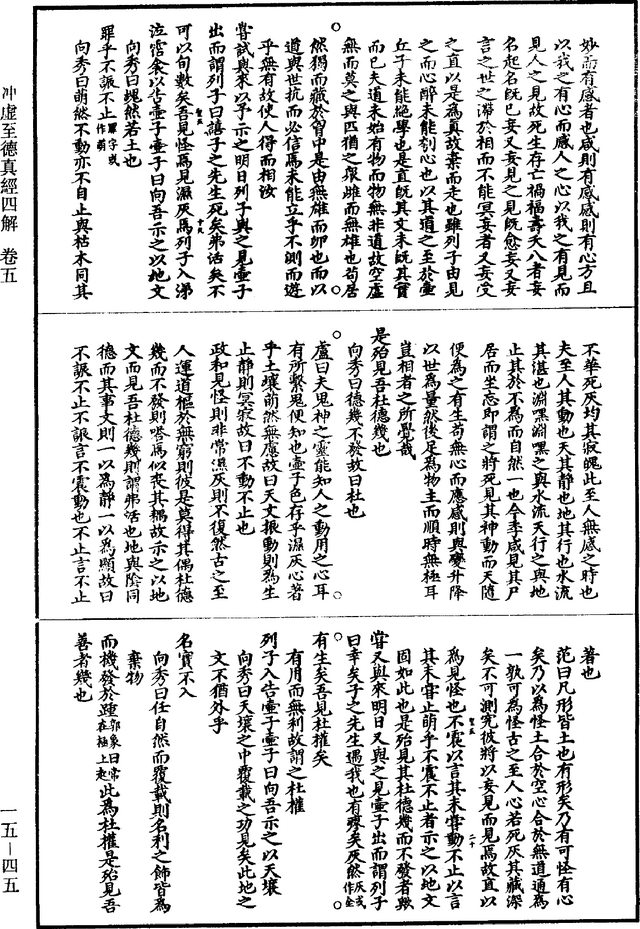 冲虛至德真經四解　卷五
妙而有感者也感則有感感則有心方且
以我之有心而感人之心以我之有見而
見人之見故死生存亡禍福壽夭八者妄
名起名既已妄又妄見之見既愈妄又妄
言之世之滯於相而不能冥妄者又妄受
之直以是為真故棄而走也雖列子由見
之而心醉未能刳心也以其道之至於壺
丘子未能絕學也是直既其文未既其實
而已夫道未始有物而物無非道故空虛
無而莫之與匹猶之衆雌而無雄也苟居
然獨而藏於胷中是由無雄而卵也而以
道與世抗而必信焉未能立乎不測而遊
乎無有故使人得而相汝
嘗試與來以予示之明日列子與之見壺子
出而謂列子曰譆子之先生死矣弗活矣不
可以旬數矣吾見怪焉見濕灰焉列子入涕
泣霑衾以告壺子壺子曰向吾示之以地文
向秀曰塊然若土也
罪乎不誫不止罪字或作萌
向秀曰萌然不動亦不自止與枯木同其
不華死灰均其寂魄此至人無感之時也
夫至人其動也天其靜也地其行也水流
其湛也淵嘿淵嘿之與水流天行之與地
止其於不為而自然一也今季咸見其尸
居而坐忘即謂之將死見其神動而天隨
便為之有生苟無心而應感則與變升降
以世為量然後足為物主而順時無極耳
豈相者之所覺哉
是殆見吾杜德幾也
向秀曰德幾不發故曰杜也
盧曰夫鬼神之靈能知人之動用之心耳
有所繫鬼便知也壺子色存乎濕灰心著
乎土壤萌然無慮故曰天文振動則為生
止靜則冥寂故曰不動不止也
政和見怪則非常濕灰則不復然古之至
人運道樞於無窮則彼是莫得其偶杜德
幾而不發則嗒焉似喪其耦故示之以地
文而見吾杜德幾則謂弗活也地與陰同
德而其事文則一以為靜一以為顯故曰
不誫不止不誫言不震動也不止言不止
著也
范曰凡形皆土也有形矣乃有可怪有心
矣乃以為怪土合於空心合於無道通為
一孰可為怪古之至人心若死灰其藏深
矣不可測究彼將以妄見而見焉故直以
為見怪也不震以言其未嘗動不止以言
其未嘗止萌乎不震不止者示之以地文
固如此也是殆見其杜德幾而不發者歟
嘗又與來明日又與之見壺子出而謂列子
曰幸矣子之先生遇我也有瘳矣灰然灰或作全
有生矣吾見杜權矣
有用而無利故謂之杜權
列子入告壺子壺子曰向吾示之以天壤
向秀曰天壤之中覆載之功見矣此地之
文不猶外乎
名實不入
向秀曰任自然而覆載則名利之飾皆為
棄物
而機發於踵郭象曰常在極上起此為杜權是殆見吾
善者幾也
一五—四五